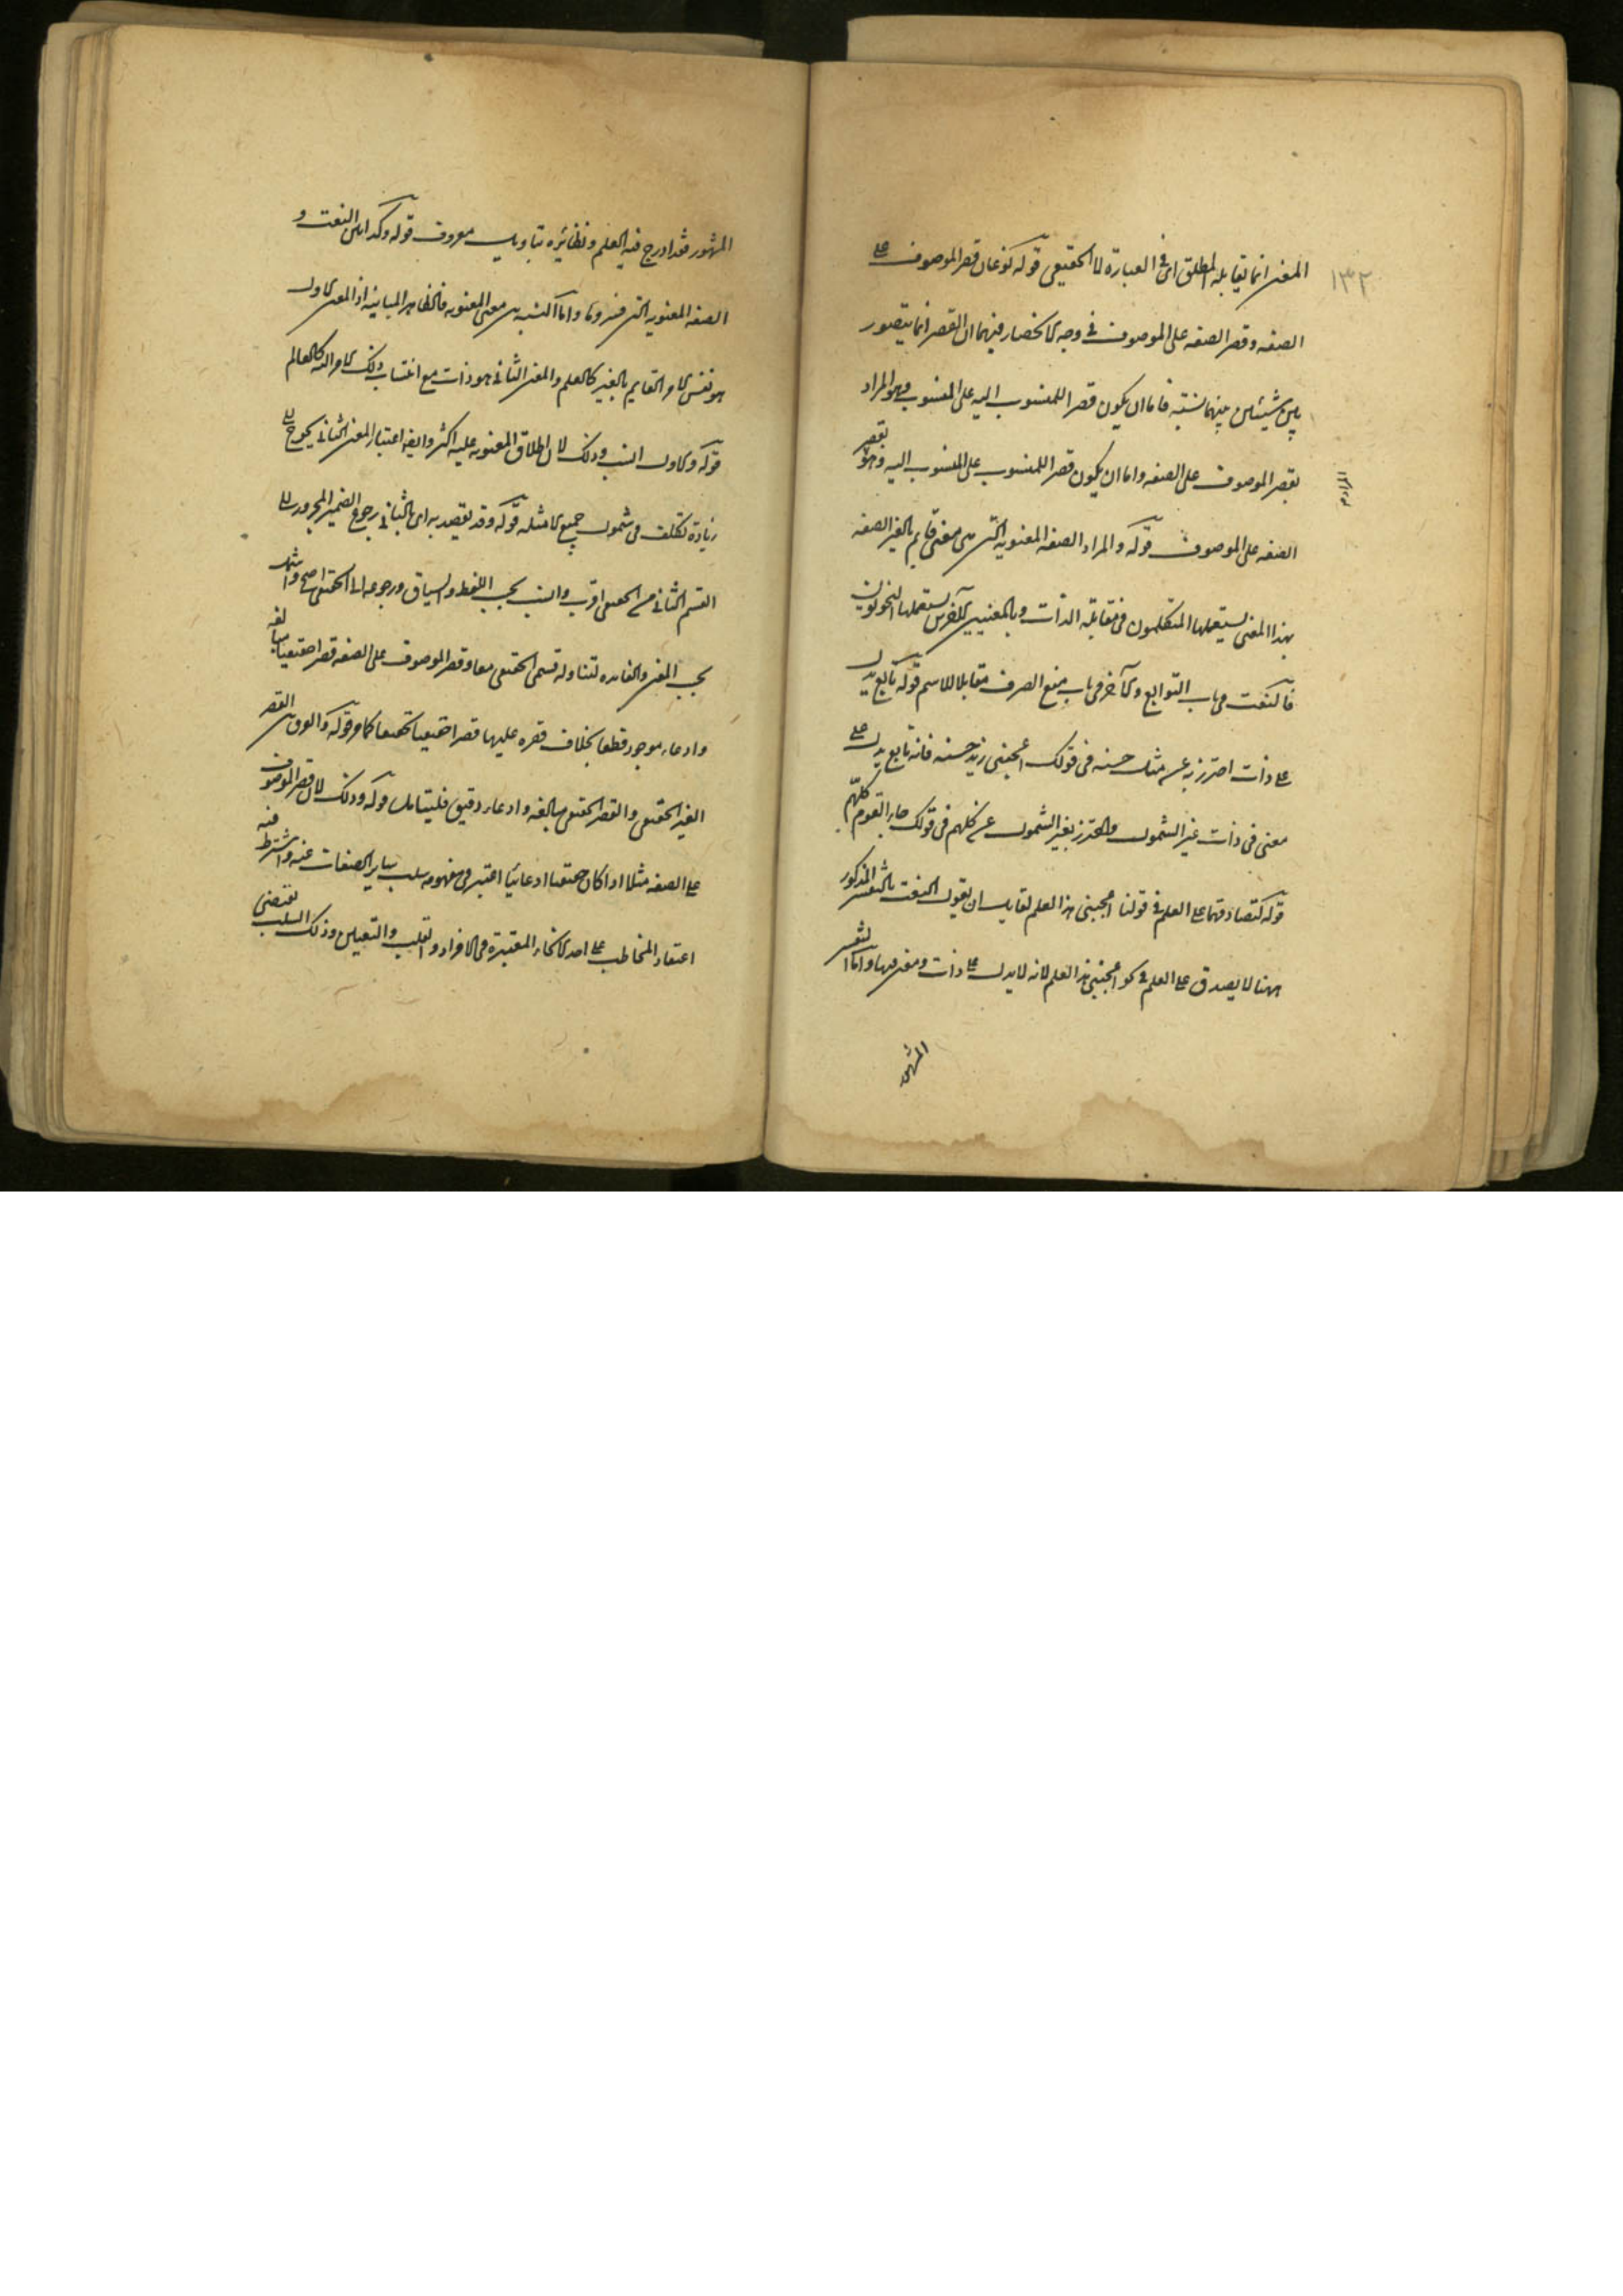 ١٣٢
المعنى انما يقابله المطلق اى فى العبارة لا الحقيقى قوله نوعان قصر الموصوف على
الصفه وقصر الصفه على الموصوف فى وجه الانحصار فيهما ان القصر انما يتصور
بين شيئين بينهما نسبته فاما ان يكون قصرا للمنسوب اليه على المنسوب وهو المراد
بقصر الموصوف على الصفه واما ان يكون قصرا للمنسوب على المنسوب اليه وهو بقصر
المراد
الصفه على الموصوف قوله والمراد الصفه المعنويه التى هى معنى قايم بالغير الصفه
بهذا المعنى يستعملها المتكلمون فى مقابلة الذات وبالمعنيين الآخرين يستعملها النحويون
فالنعت فى باب التوابع والآخر فى باب منع الصرف مقابلا للاسم قوله تابع يدل
على ذات احترز به عن مثل حسنه فى قولك اعجبنى زيد حسنه فانه تابع يدل على
معنى فى ذات غير الشمول واحترز بغير الشمول عن كلهم فى قولك جاء القوم كلهم
قوله لتصادقهما على العلم فى قولنا اعجبنى هذا العلم لقايل ان يقول النعت بالتفسير المذكور
ههنا لا يصدق على العلم فى نحو اعجبنى هذا العلم لانه لا يدل على ذات ومعنى فيها واما التفسير
المشهور
المشهور فقد ادرج فيه العلم ونظائره بتاويل معروف قوله وكذا بين النعت و
الصفه المعنويه التى فسروها واما النسبه بين معنى المعنويه فالظاهر المباينه اذ المعنى الاول
هو نفس الامر القايم بالغير كالعلم والمعنى الثانى هو ذات مع انتساب ذلك الامر اليه كالعالم
قوله والاول انسب وذلك لان اطلاق المعنويه عليه اكثر وايضا اعتبار المعنى الثانى يحوج الى
زيادة تكلف فى شمول جميع الامثله قوله وقد يقصد به اى بالثانى رجوع الضمير المجرور الى
القسم الثانى من الحقيقى اقرب وانسب بحسب اللفظ والسياق ورجوعه الى الحقيقى اصح واشمل
بحسب المعنى والفايده لتناوله قسمى الحقيقى معا وقصر الموصوف على الصفه قصرا حقيقيا مبالغه
وادعاء موجود قطعا بخلاف قصره عليها قصرا حقيقيا تحقيقا كما مر قوله والفرق بين القصر
الغير الحقيقى والقصر الحقيقى مبالغه وادعاء دقيق فليتامل قوله وذلك لان قصر الموصوف
على الصفه مثلا اذا كان حقيقيا ادعائيا اعتبر فى مفهومه سلب ساير الصفات عنه واشترط فيه
اعتقاد المخاطب على احد الانحاء المعتبرة فى الافراد والقلب والتعيين وذلك السلب يقتضى